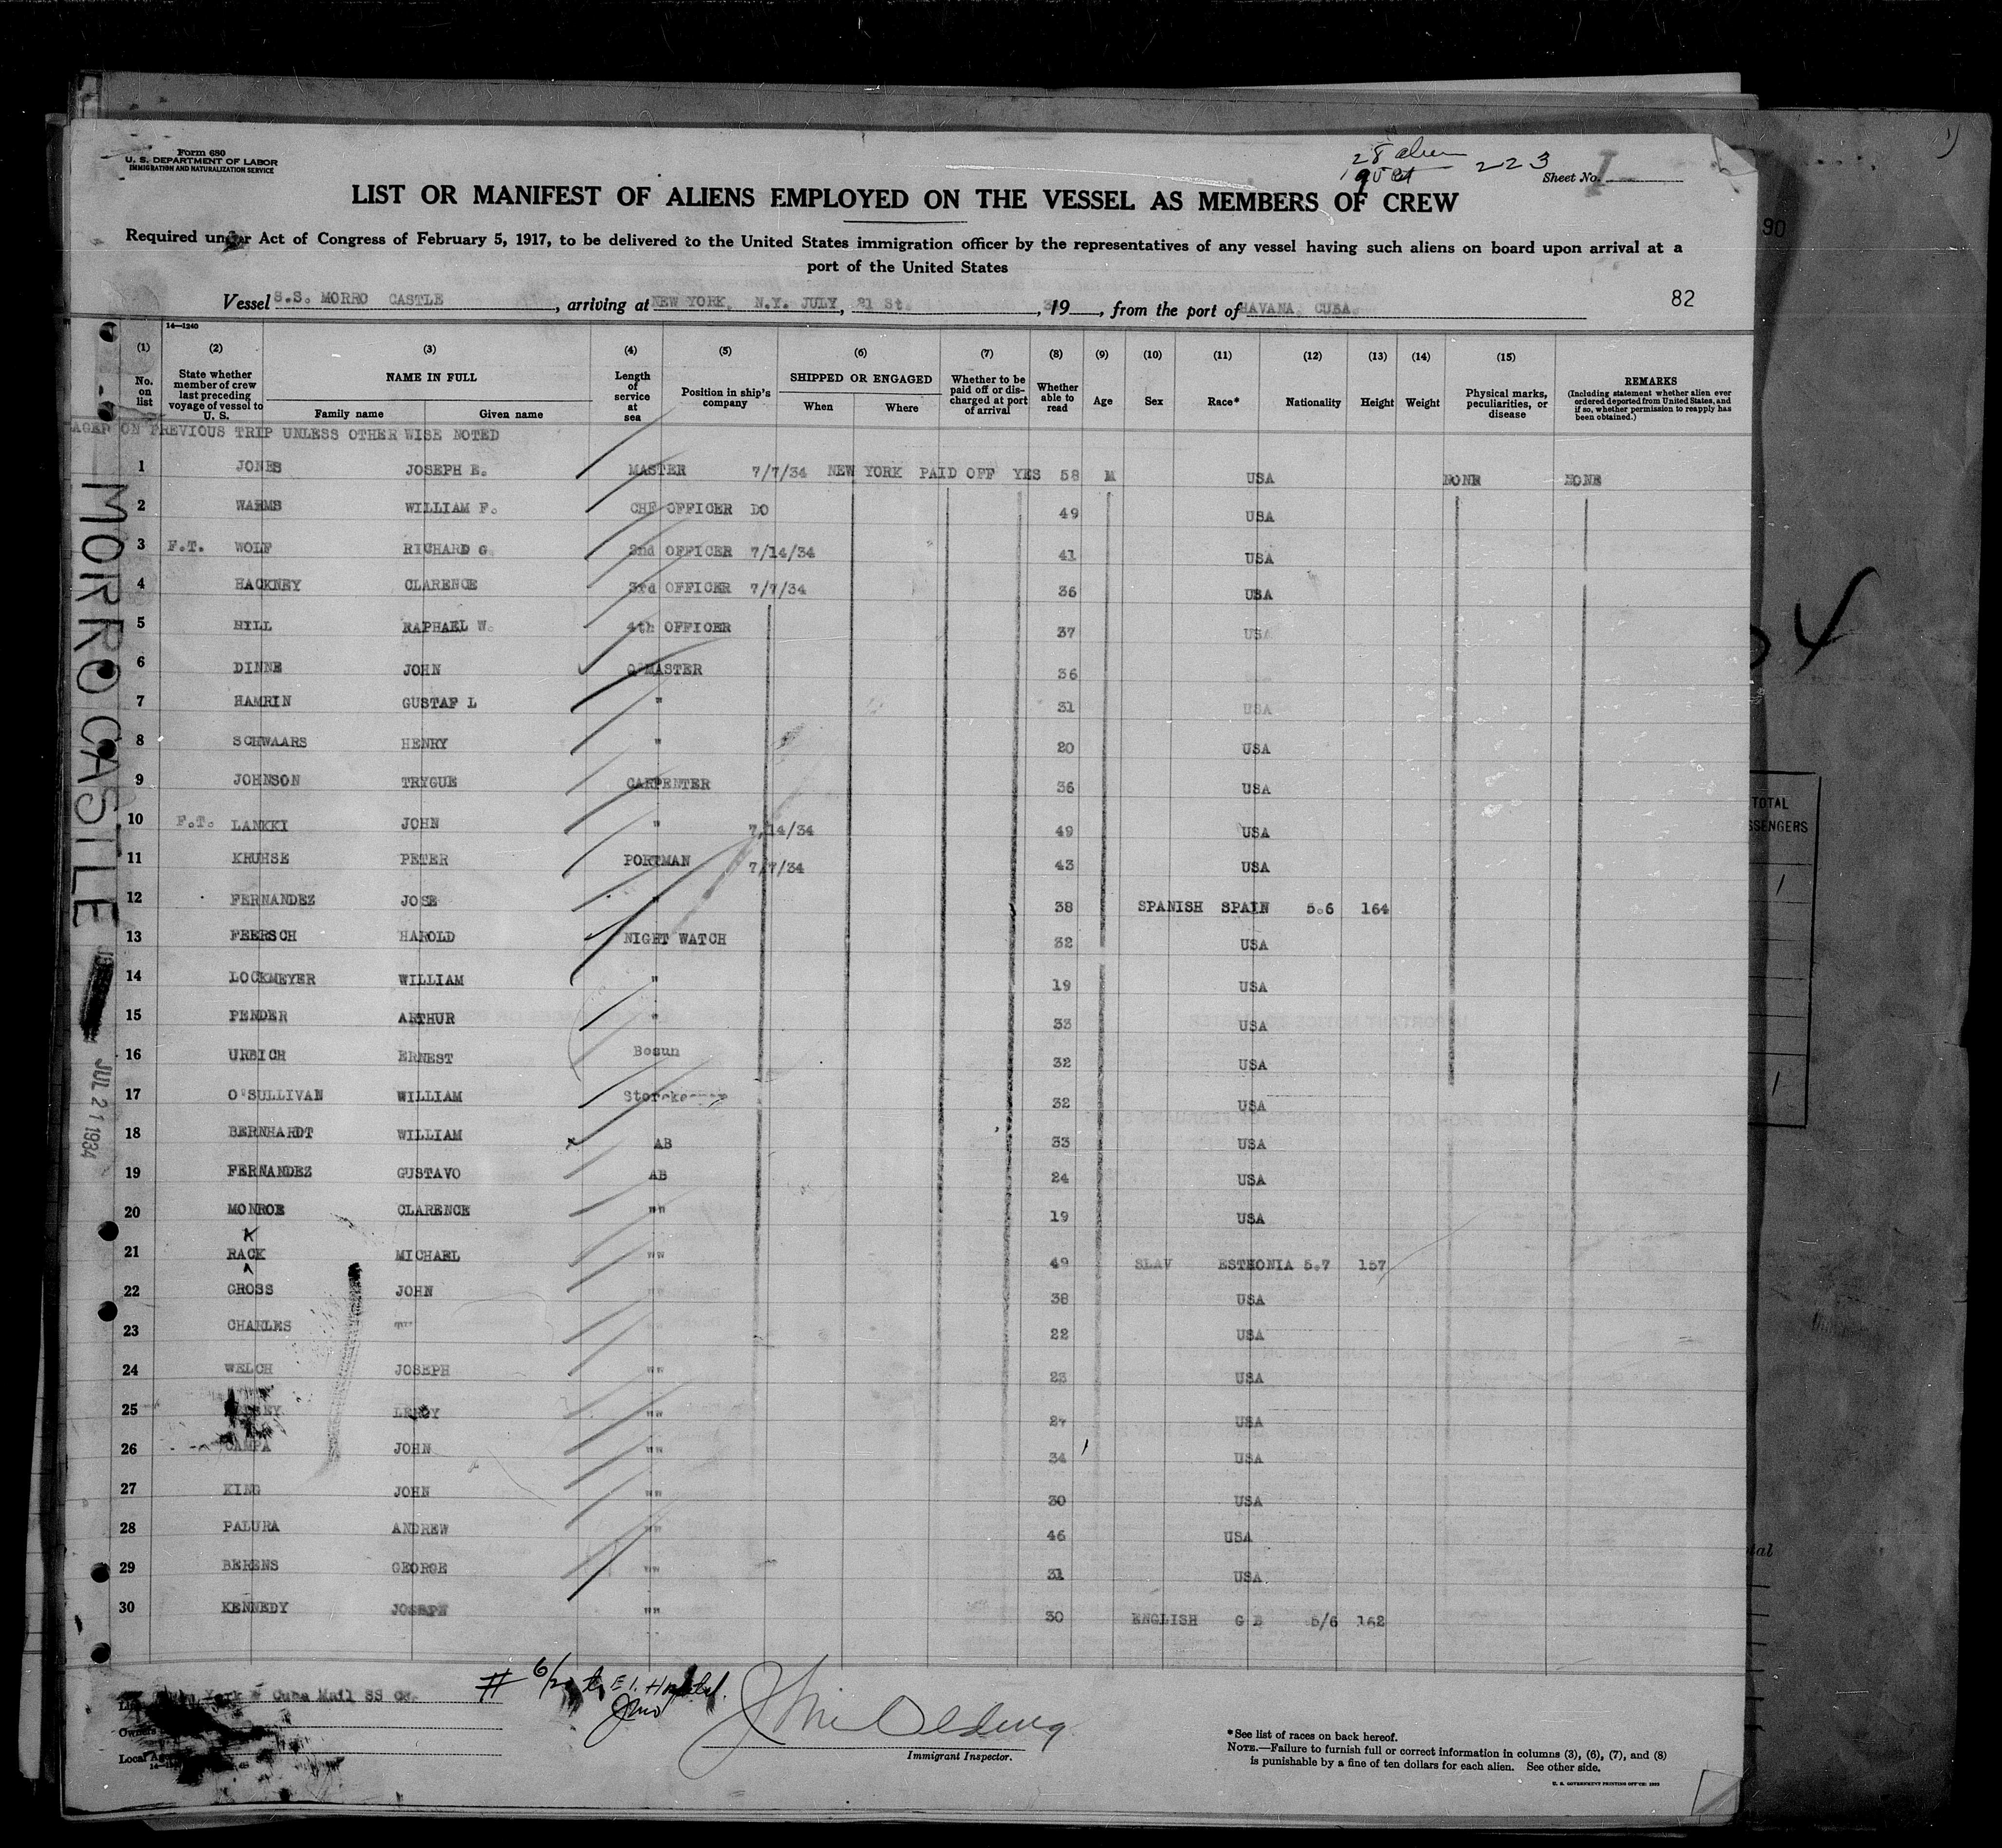 Form 680
U. S. DEPARTMENT OF LABOR
IMMIGRATION AND NATURALIZATION SERVICE
28 alien
223
Sheet No. 1
LIST OR MANIFEST OF ALIENS EMPLOYED ON THE VESSEL AS MEMBERS OF CREW
Required under Act of Congress of February 5, 1917, to be delivered to the United States immigration officer by the representatives of any vessel having such aliens on board upon arrival at a
port of the United States
Vessel S.S. MORRO CASTLE, arriving at NEW YORK, N.Y. JULY, 21 St., 19, from the port of HAVANA, CUBA.
82
90
14—1240
(1) (2) (3) (4) (5) (6) (7) (8) (9) (10) (11) (12) (13) (14) (15)
No. on list
State whether member of crew last preceding voyage of vessel to U. S.
NAME IN FULL
Family name Given name
Length of service at sea
Position in ship's company
SHIPPED OR ENGAGED
When Where
Whether to be paid off or discharged at port of arrival
Whether able to read
Age
Sex
Race*
Nationality
Height
Weight
Physical marks, peculiarities, or disease
REMARKS
(Including statement whether alien ever ordered deported from United States, and if so, whether permission to reapply has been obtained.)
AGED ON PREVIOUS TRIP UNLESS OTHER WISE NOTED
1 JONES JOSEPH E. MASTER 7/7/34 NEW YORK PAID OFF YES 58 M USA NONE NONE
2 WARMS WILLIAM F. CHF OFFICER DO 49 USA
3 F.T. WOLF RICHARD G. 2nd OFFICER 7/14/34 41 USA
4 HACKNEY CLARENCE 3rd OFFICER 7/7/34 36 USA
5 HILL RAPHAEL W. 4th OFFICER 37 USA
6 DINNE JOHN Q'MASTER 36
7 HAMRIN GUSTAF L " 31 USA
8 SCHWAARS HENRY " 20 USA
9 JOHNSON TRYGUE CARPENTER 36 USA
10 F.T. LANKKI JOHN " 7/14/34 49 USA
11 KRUHSE PETER PORTMAN 7/7/34 43 USA
12 FERNANDEZ JOSE " 38 SPANISH SPAIN 5.6 164
13 FEERSCH HAROLD NIGHT WATCH 32 USA
14 LOCKMEYER WILLIAM " 19 USA
15 PENDER ARTHUR " 33 USA
16 URBICH ERNEST Bosun 32 USA
17 O'SULLIVAN WILLIAM Storekeeper 32 USA
18 BERNHARDT WILLIAM AB 33 USA
19 FERNANDEZ GUSTAVO AB 24 USA
20 MONROE CLARENCE "" 19 USA
21 RACK MICHAEL "" 49 SLAV ESTHONIA 5.7 157
22 GROSS JOHN "" 38 USA
23 CHARLES "" 22 USA
24 WELCH JOSEPH "" 23 USA
25 LEROY "" USA
26 CAMPA JOHN "" 34 USA
27 KING JOHN "" 30 USA
28 PALURA ANDREW "" 46 USA
29 BERENS GEORGE "" 31 USA
30 KENNEDY JOSEPH "" 30 ENGLISH G B 5/6 162
MORRO CASTLE
JUL 21 1934
York & Cuba Mail SS Co.
Owners
Local
# 6/ E I. Hospital.
Immigrant Inspector.
*See list of races on back hereof.
NOTE.—Failure to furnish full or correct information in columns (3), (6), (7), and (8)
is punishable by a fine of ten dollars for each alien. See other side.
U. S. GOVERNMENT PRINTING OFFICE: 1933
TOTAL
SSENGERS